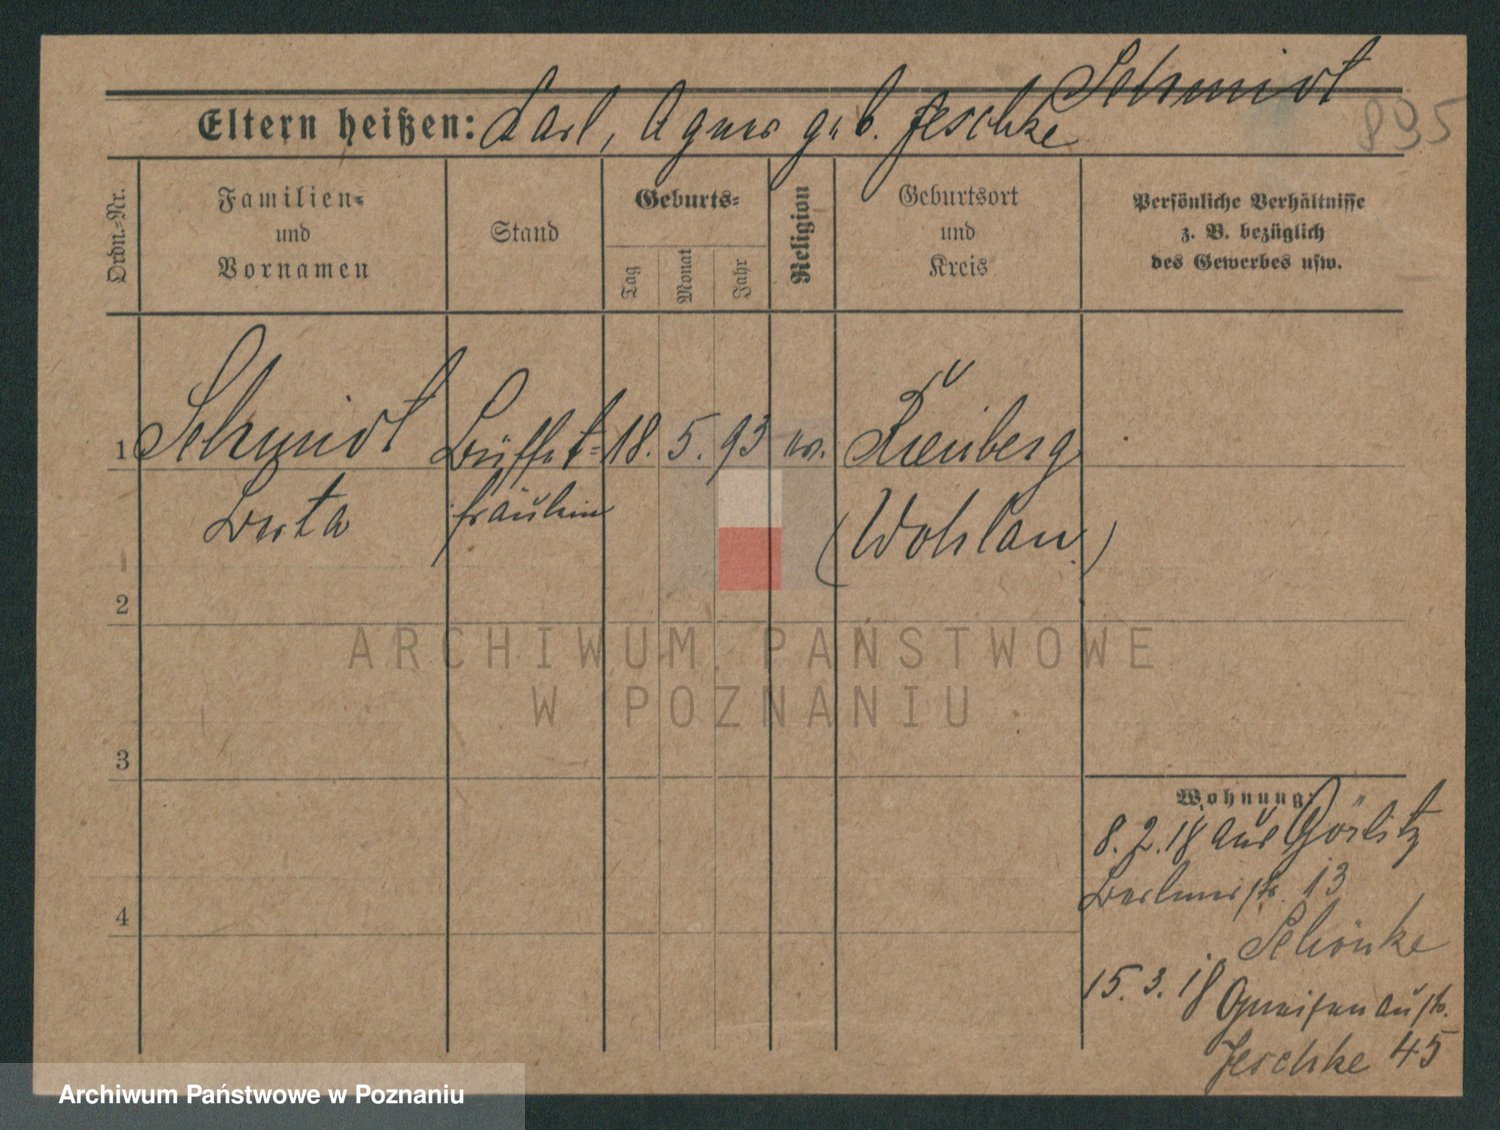 Schmidt
895
Eltern heißen: Karl, Agnes geb. Jeschke
Ordn.-Nr.
Familien-
und
Vornamen
Stand
Geburts-
Tag
Monat
Jahr
Religion
Geburtsort
und
Kreis
Persönliche Verhältnisse
z. B. bezüglich
des Gewerbes usw.
1 Schmidt Büffet- 18. 5. 93 ev.
Berta fräulein (Wohlau)
2
ARCHIWUM PAŃSTWOWE
W POZNANIU
3
Wohnung:
8. 2. 18 aus Görlitz
Berlinerstr. 13
4
Schönke
15. 3. 18 Gneisenaustr.
Jeschke 45
Archiwum Państwowe w Poznaniu